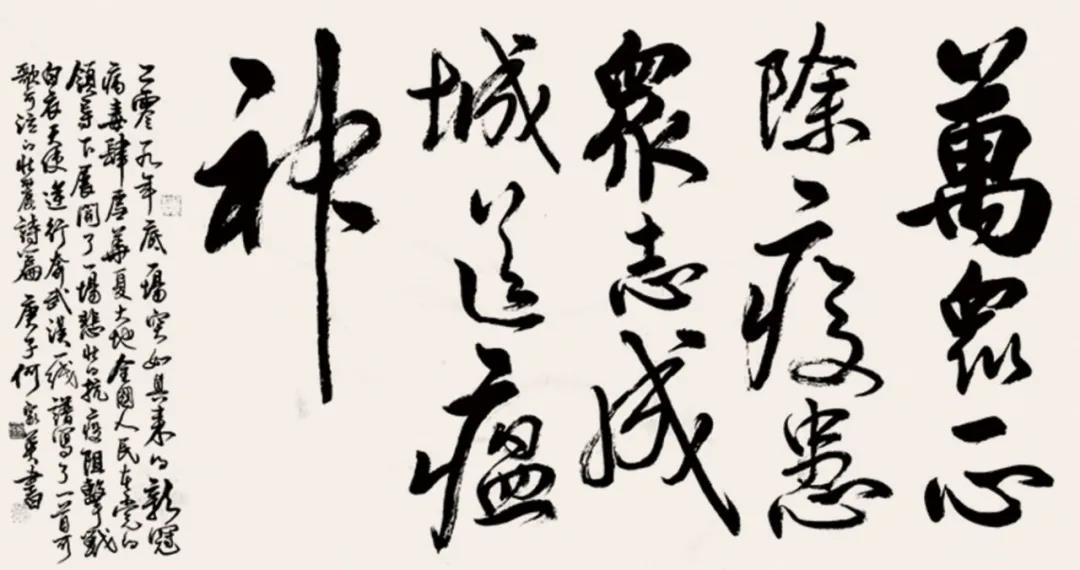 萬眾一心
除疫患
衆志成
城送瘟
神
二零一九年底一場突如其来的新冠
病毒肆虐華夏大地全國人民在党的
領導下展開了一場悲壯的抗疫阻擊戰
白衣天使逆行奔武漢一綫譜寫了一首可
歌可泣的壯麗詩篇 庚子何家英書